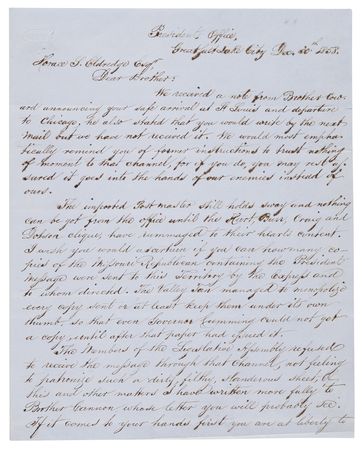 President's Office,
Great Salt Lake City Dec. 20th 1858.
Horace S. Eldredge Esqr
Dear Brother:
We received a note from Brother Gro-
ard announcing your safe arrival at St Louis and departure
to Chicago, he also stated that you would write by the next
Mail but we have not received it. We would most empha-
tically remind you of former instructions to trust nothing
of moment to that channel, for if you do, you may rest as-
sured it goes into the hands of our enemies instead of
ours.
The imported Post master still holds sway and nothing
can be got from the office until the Hart, Burr, Craig and
Dotson clique, have rummaged to their hearts content.
I wish you would ascertain if you can how many co-
pies of the Missouri Republican containing the President's
Message were sent to this Territory by the Express and
to whom directed. The Valley Tan managed to monopolize
every copy sent or at least keep them under its own
thumb, so that even Governor Cumming could not get
a copy, until after that paper had issued it.
The Members of the Legislative Assembly refused
to receive the message through that Channel, not feeling
to patronize such a dirty, filthy, slanderous sheet, of
this and other matters I have written more fully to
Brother Cannon whose letter you will probably see.
If it comes to your hands first you are at liberty to